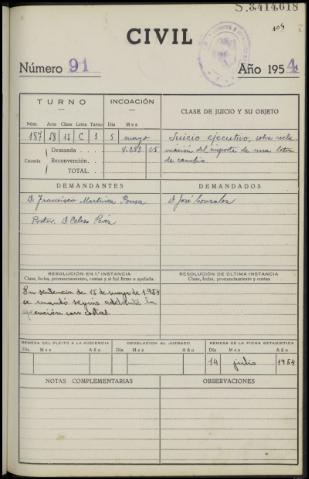 S.3414.618
104
CIVIL
Número 91
Año 1954
TURNO
INCOACIÓN
CLASE DE JUICIO Y SU OBJETO
Núm. Año Clase Letra Turno Día Mes
187 C 3 5 mayo
Cuantía Demanda 05
Reconvención
TOTAL
Juicio ejecutivo, sobre recla-
mación del importe de una letra
de cambio
DEMANDANTES
DEMANDADOS
D. Francisco Martínez
Procur. D. Celso
D. José González
RESOLUCIÓN EN 1.ª INSTANCIA
Clase, fecha, pronunciamiento, costas y si fué firme o apelada
RESOLUCIÓN DE ÚLTIMA INSTANCIA
Clase, fecha, pronunciamiento y costas
En sentencia de 15 de mayo de 1954
se mandó seguir adelante la
ejecución con costas
REMESA DEL PLEITO A LA AUDIENCIA
DEVOLUCIÓN AL JUZGADO
REMESA DE LA FICHA ESTADÍSTICA
Día Mes Año Día Mes Año Día Mes Año
14 julio 1954
NOTAS COMPLEMENTARIAS
OBSERVACIONES